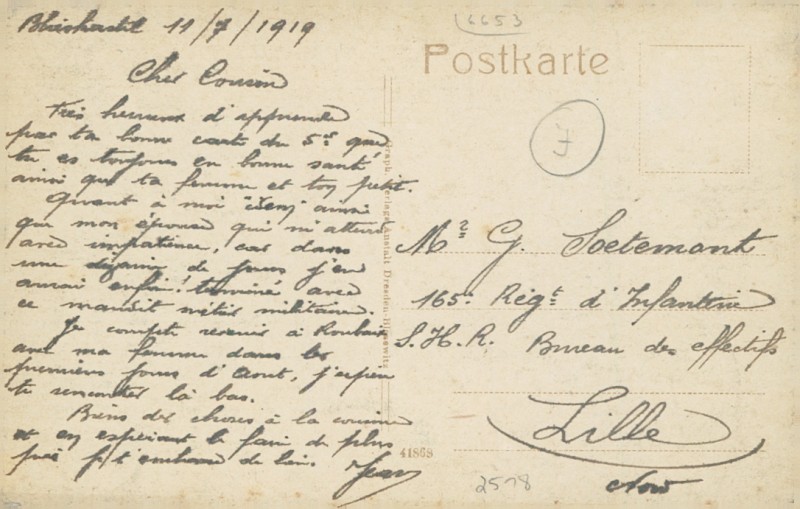 Blieskastel 11/7/1919
Cher Cousin
Très heureux d'apprendre
par ta bonne carte du 5 ct que
tu es toujours en bonne santé
ainsi que ta femme et ton petit.
Quant à moi "idem" ainsi
que mon épouse qui m'attend
avec impatience, car dans
une dizaine de jours j'en
aurai enfin! terminé avec
ce maudit métier militaire.
Je compte revenir à Roubaix
avec ma femme dans les
premiers jours d'Aout, j'espère
te rencontrer là bas.
Biens des choses à la cousine
et en espérant le faire de plus
près je t'embrasse de loin.
Jean
Graph. Verlags-Anstalt Dresden-Blasewitz
41869
6653
Postkarte
F
Mr G. Soetemont
165e Régt d'Infanterie
S.H.R. Bureau des effectifs
Lille
Nord
2578